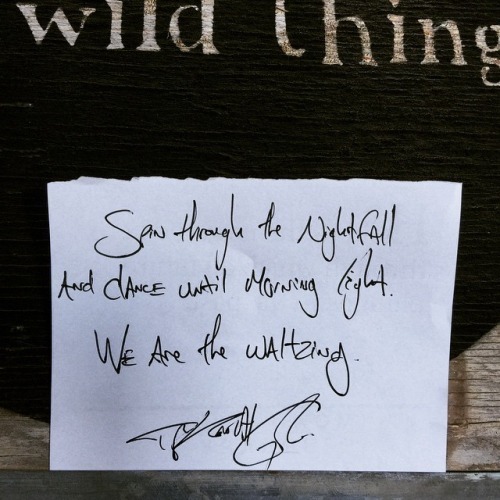 wild thing
Spin through the Nightfall
And dance until Morning light.
We Are the waltzing.